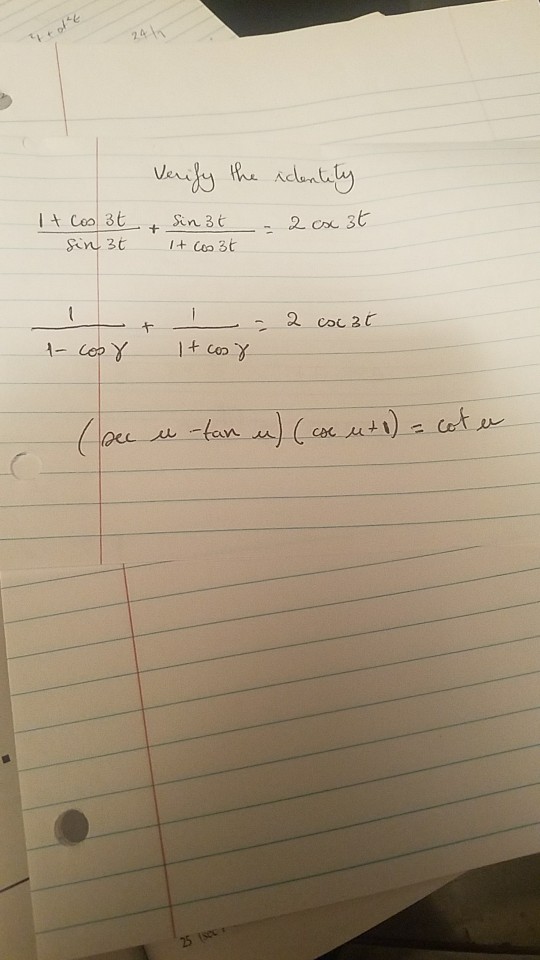 24/1
Verify the identity
1 + cos 3t / sin 3t + sin 3t / 1 + cos 3t = 2 csc 3t
1 / 1 - cos γ + 1 / 1 + cos γ = 2 csc 3t
(sec u - tan u) (csc u + 1) = cot u
25